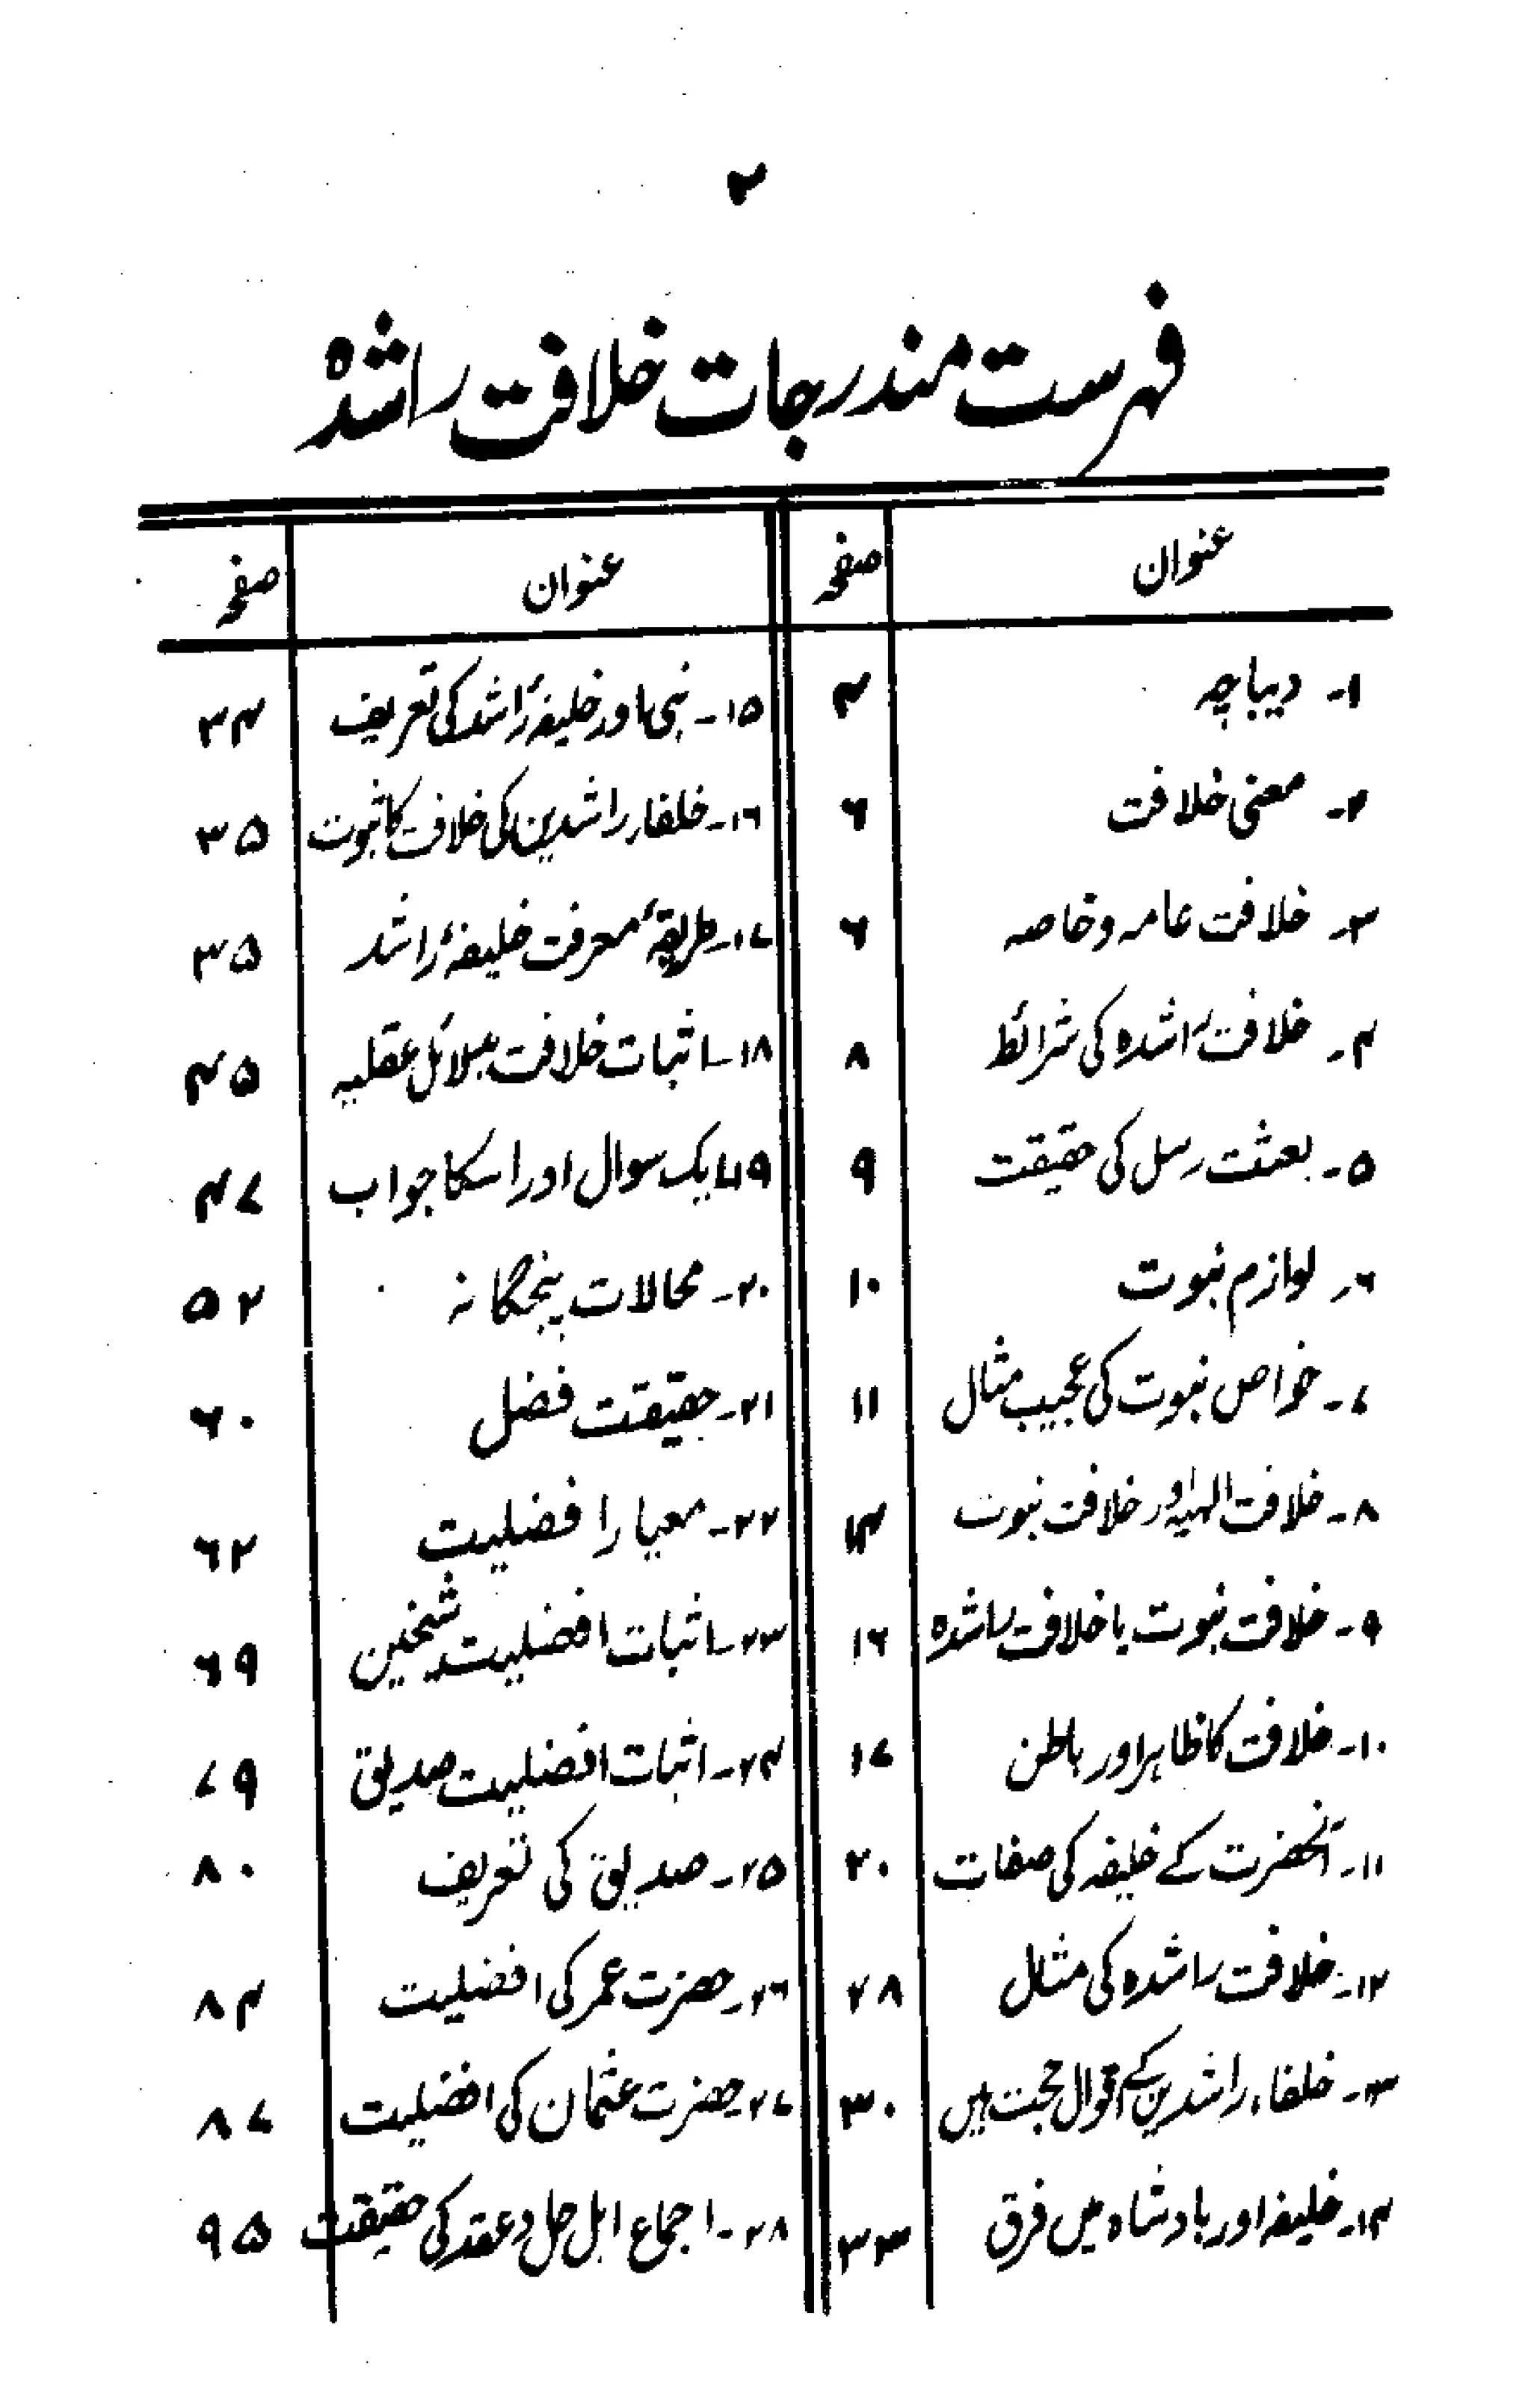 ۲
فہرست مندرجات خلافت راشدہ
عنوان صفحہ
۱۔ دیباچہ ۴
۲۔ معنی خلافت ۶
۳۔ خلافت عامہ و خاصہ ۶
۴۔ خلافت راشدہ کی شرائط ۸
۵۔ بعثت رسل کی حقیقت ۹
۶۔ لوازم نبوت ۱۰
۷۔ خواص نبوت کی عجیب مثال ۱۱
۸۔ خلافت الہیہ اور خلافت نبوت ۱۴
۹۔ خلافت نبوت یا خلافت راشدہ ۱۶
۱۰۔ خلافت کا ظاہر اور باطن ۱۷
۱۱۔ آنحضرت کے خلیفہ کی صفات ۲۰
۱۲۔ خلافت راشدہ کی مثال ۲۸
۱۳۔ خلفاء راشدین کے اقوال حجت ہیں ۳۰
۱۴۔ خلیفہ اور بادشاہ میں فرق ۳۳
عنوان صفحہ
۱۵۔ نبی اور خلیفۂ راشد کی تعریف ۳۴
۱۶۔ خلفاء راشدین کی خلافت کا ثبوت ۳۵
۱۷۔ طریقۂ معرفت خلیفۂ راشد ۳۵
۱۸۔ اثبات خلافت بدلائل عقلیہ ۴۵
۱۹۔ ایک سوال اور اسکا جواب ۴۷
۲۰۔ محالات پنجگانہ ۵۲
۲۱۔ حقیقت فضل ۶۰
۲۲۔ معیار افضلیت ۶۲
۲۳۔ اثبات افضلیت شیخین ۶۹
۲۴۔ اثبات افضلیت صدیق ۷۹
۲۵۔ صدیق کی تعریف ۸۰
۲۶۔ حضرت عمر کی افضلیت ۸۴
۲۷۔ حضرت عثمان کی افضلیت ۸۷
۲۸۔ اجماع اہل حل و عقد کی حقیقت ۹۵